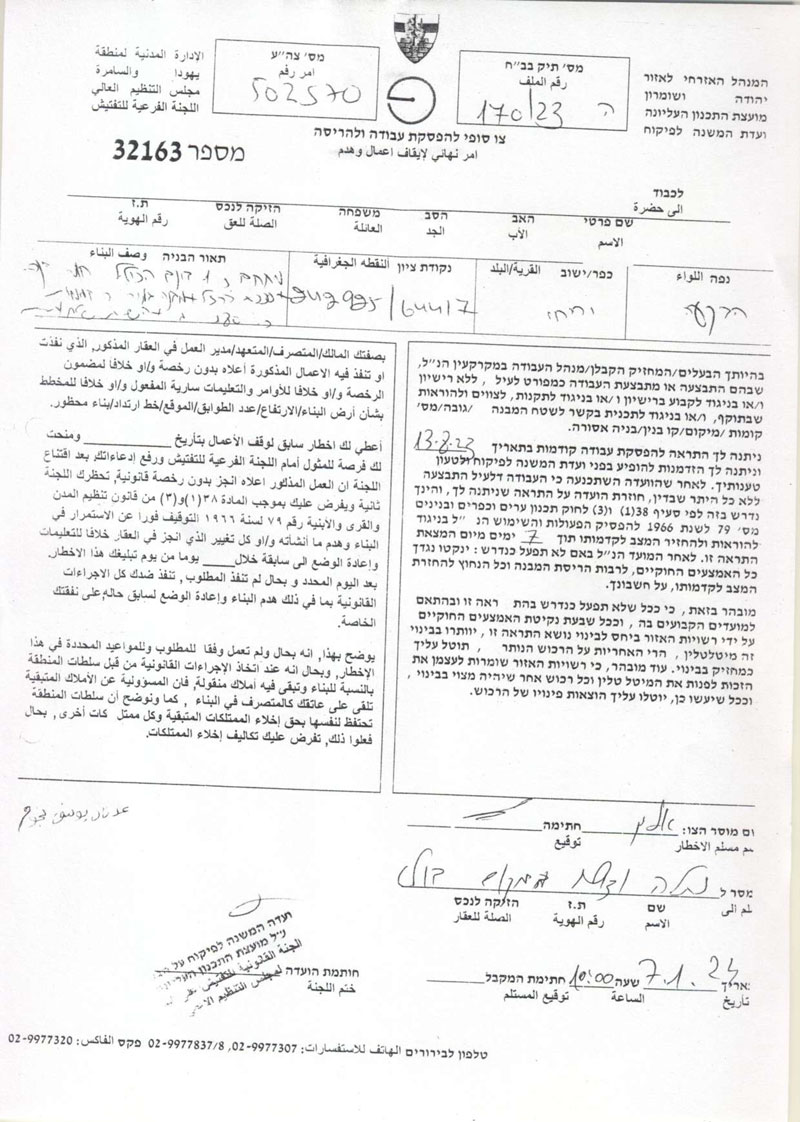 המנהל האזרחי לאזור
יהודה ושומרון
מועצת התכנון העליונה
ועדת המשנה לפיקוח
מס׳ תיק בב״ח
رقم الملف
ה 170/23
מס׳ צה״ע
امر رقم
502570
الإدارة المدنية لمنطقة
يهودا والسامرة
مجلس التنظيم العالي
اللجنة الفرعية للتفتيش
צו סופי להפסקת עבודה ולהריסה
امر نهائي لإيقاف اعمال وهدم
מספר 32163
לכבוד
الى حضرة
שם פרטי האב הסב משפחה הזיקה לנכס ת.ז
الاسم الأب الجد العائلة الصلة للعق رقم الهوية
נפה اللواء
כפר/ישוב القرية/البلد
נקודת ציון النقطه الجغرافية
תאור הבניה وصف البناء
בהיותך הבעלים/המחזיק הקבלן/מנהל העבודה במקרקעין הנ״ל,
שבהם התבצעה או מתבצעת העבודה כמפורט לעיל , ללא רישיון
ו/או בניגוד לקבוע ברישיון ו /או בניגוד לתקנות, לצווים ולהוראות
שבתוקף, ו/או בניגוד לתכנית בקשר לשטח המבנה /גובה/מס׳
קומות /מיקום/קו בנין/בניה אסורה.
ניתנה לך התראה להפסקת עבודה קודמות בתאריך 13.8.23
וניתנה לך הזדמנות להופיע בפני ועדת המשנה לפיקוח ולטעון
טענותיך. לאחר שהוועדה השתכנעה כי העבודה דלעיל התבצעה
ללא כל היתר שבדין, חוזרת הועדה על התראה שניתנה לך, והינך
נדרש בזה לפי סעיף 38(1) ו(3) לחוק תכנון ערים וכפרים ובנינים
מס׳ 79 לשנת 1966 להפסיק הפעולות והשימוש הנ ״ל בניגוד
להוראות ולהחזיר המצב לקדמותו תוך 7 ימים מיום המצאת
התראה זו. לאחר המועד הנ״ל באם לא תפעל כנדרש : ינקטו נגדך
כל האמצעים החוקיים, לרבות הריסת המבנה וכל הנחוץ להחזרת
המצב לקדמותו, על חשבונך.
מובהר בזאת, כי ככל שלא תפעל כנדרש בהת ראה זו ובהתאם
למועדים הקבועים בה , וככל שבעת נקיטת האמצעים החוקיים
על ידי רשויות האזור ביחס לבינוי נושא התראה זו, יוותרו בבינוי
זה מיטלטלין, הרי האחריות על הרכוש הנותר , תוטל עליך
כמחזיק בבינוי. עוד מובהר, כי רשויות האזור שומרות לעצמן את
הזכות לפנות את המיטל טלין וכל רכוש אחר שיהיה מצוי בבינוי ,
וככל שיעשו כן, יוטלו עליך הוצאות פינויו של הרכוש.
بصفتك المالك/المتصرف/المتعهد/مدير العمل في العقار المذكور, الذي نفذت
او تنفذ فيه الاعمال المذكورة أعلاه بدون رخصة و/او خلافا لمضمون
الرخصة و/او خلافا للأوامر والتعليمات سارية المفعول و/او خلافا للمخطط
بشأن أرض البناء/الارتفاع/عدد الطوابق/الموقع/خط ارتداد/بناء محظور.
أعطي لك اخطار سابق لوقف الأعمال بتاريخ ومنحت
لك فرصة للمثول أمام اللجنة الفرعية للتفتيش ورفع إدعاءاتك, بعد اقتناع
اللجنة ان العمل المذكور اعلاه انجز بدون رخصة قانونية, تحظرك اللجنة
ثانية ويفرض عليك بموجب المادة ٣٨(١)و(٣) من قانون تنظيم المدن
والقرى والأبنية رقم ٧٩ لسنة ١٩٦٦ التوقيف فورا عن الاستمرار في
البناء وهدم ما أنشأته و/او كل تغيير الذي انجز في العقار خلافا للتعليمات
وإعادة الوضع الى سابقة خلال يوما من يوم تبليغك هذا الاخطار.
بعد اليوم المحدد و بحال لم تنفذ المطلوب , تنفذ ضدك كل الاجراءات
القانونية بما في ذلك هدم البناء وإعادة الوضع لسابق حاله, على نفقتك
الخاصة.
يوضح بهذا, انه بحال ولم تعمل وفقا للمطلوب وللمواعيد المحددة في هذا
الإخطار, وبحال انه عند اتخاذ الإجراءات القانونية من قبل سلطات المنطقة
بالنسبة للبناء وتبقى فيه أملاك منقولة, فان المسؤولية عن الأملاك المتبقية
تلقى على عاتقك كالمتصرف في البناء , كما ونوضح أن سلطات المنطقة
تحتفظ لنفسها بحق إخلاء الممتلكات المتبقية وكل ممتل كات أخرى, بحال
فعلوا ذلك, تفرض عليك تكاليف إخلاء الممتلكات.
ום מוסר הצו: חתימה
سم مسلم الاخطار توقيع
מסר ל
لم الى
שם ת.ז הזיקה לנכס
الاسم رقم الهوية الصلة للعقار
אריך 7.1.24 שעה 10:00 חתימת המקבל
تاريخ الساعة توقيع المستلم
חותמת הועדה
ختم اللجنة
טלפון לבירורים الهاتف للاستفسارات: 02-9977307, 02-9977837/8 פקס الفاكس: 02-9977320